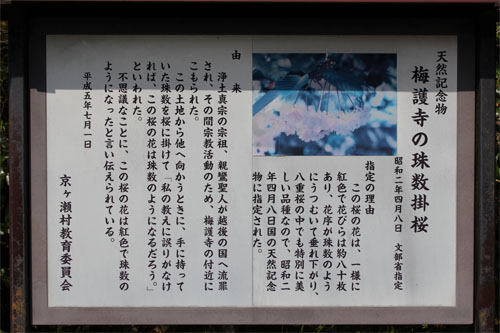 天然記念物
梅護寺の珠数掛桜
昭和二年四月八日 文部省指定
指定の理由
この桜の花は、一様に
紅色で花びらは約八十枚
あり、花序が珠数のよう
にうつむいて垂れ下がり、
八重桜の中でも特別に美
しい品種なので、昭和二
年四月八日国の天然記念
物に指定された。
由来
浄土真宗の宗祖、親鸞聖人が越後の国へ流罪
され、その間宗教活動のため、梅護寺の付近に
こもられた。
この土地から他へ向かうときに、手に持って
いた珠数を桜に掛けて「私の教えに誤りがなけ
れば、この桜の花は珠数のようになるだろう」
といわれた。
不思議なことに、この桜の花は紅色で珠数の
ようになったと言い伝えられている。
平成五年七月一日
京ヶ瀬村教育委員会